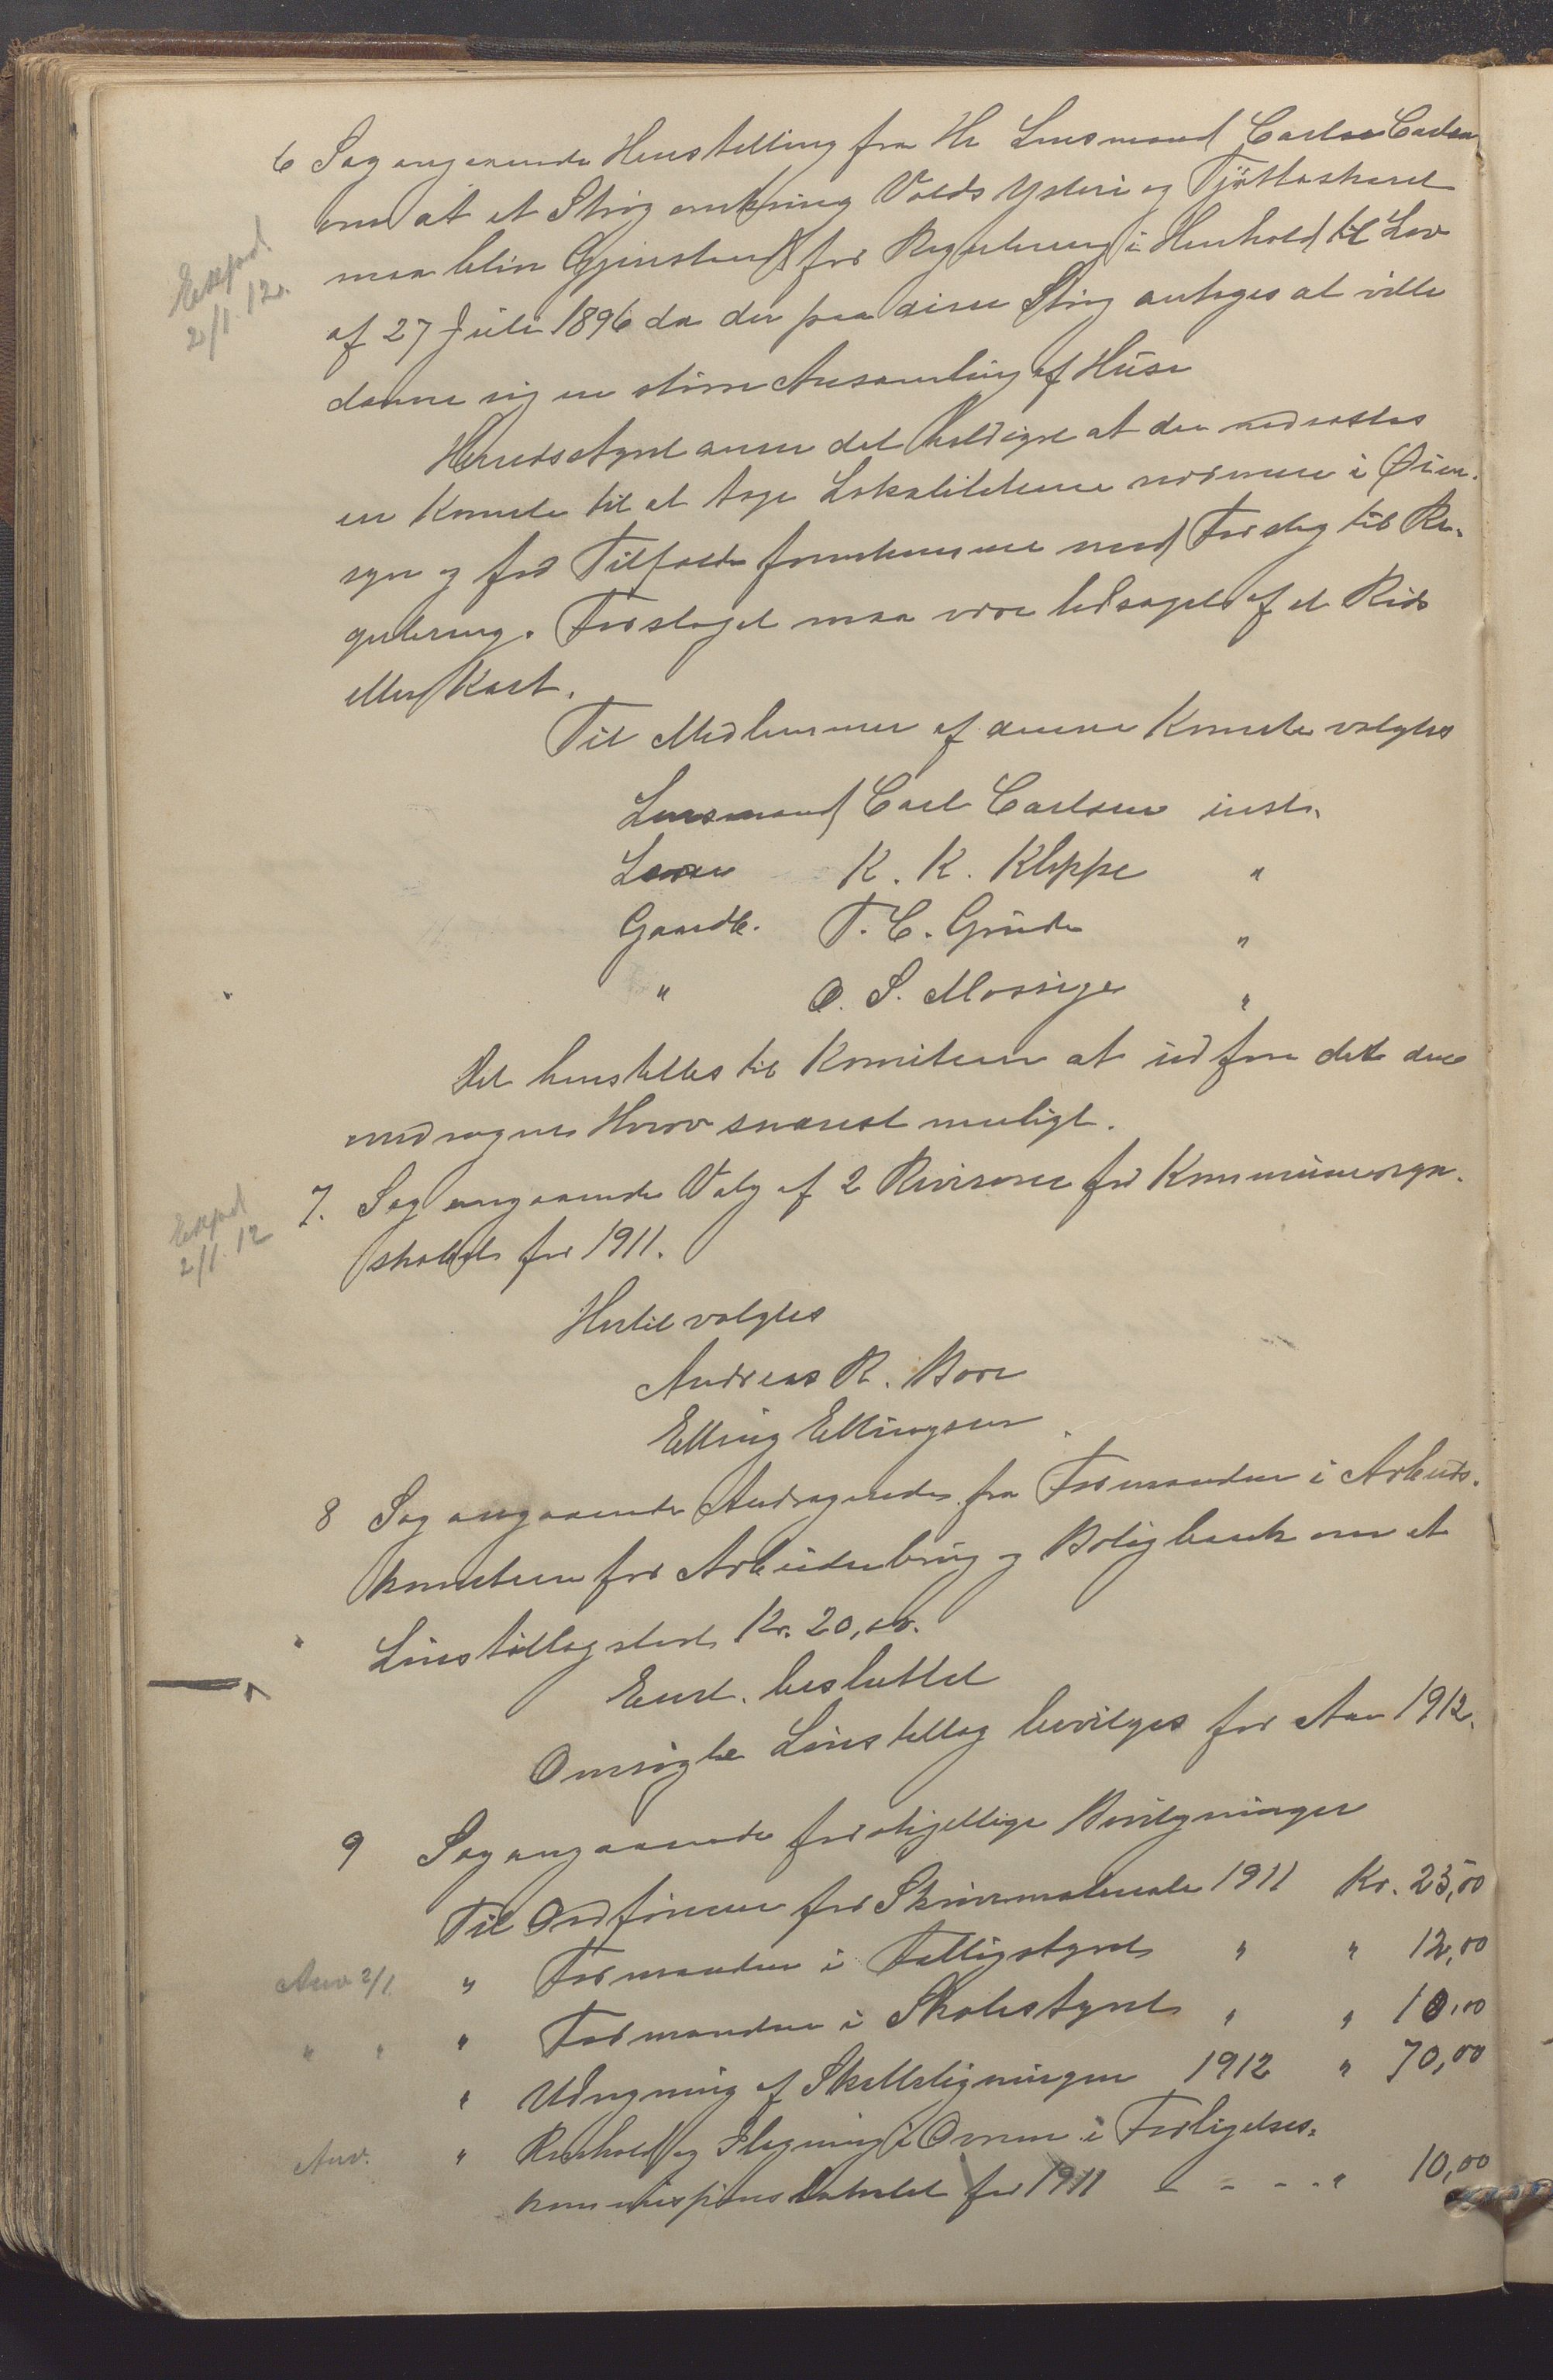 6 Sag angaaende Henstilling fra Hr Lensmand Carl Carlsen
om at et Strøg omkring Volds Ysteri og Tjøttaskaret
maa bliv Gjenstand for Regulering i Henhold til Lov
Exped
2/1. 12.
af 27 Juli 1896 da der paa disse Strøg antages at ville
danne sig en større Ansamling af Huse
Herredsstyret anser det heldigst at der nedsættes
en Komite til at tage Lokaliteterne nærmere i Øien-
syn og for Tilfælde fremkomme med Forslag til Re-
gulering. Forslaget maa være ledsaget af et Rids
eller Kart.
Til Medlemmer af denne Komite valgtes
Lensmand Carl Carlsen enst.
Lærer K. K. Kleppe "
Gaardb. T. C. Grude "
" O. S. Mossige "
Det henstilles til Komiteen at udføre dette dem
anddragne Hverv snarest muligt.
Exped
2/1. 12
7. Sag angaaende Valg af 2 Revisorer for Kommuneregn-
skabet for 1911.
Hertil valgtes
Andreas R. Bore
Elling Ellingsen.
8 Sag angaaende Andragende fra Formanden i Arbeids-
komiteen for Arbeiderbrug og Boligbank om et
Lønstillæg stort Kr. 20,00.
Enst. besluttet
Omsøgte Lønstillæg bevilges for Aar 1912.
9 Sag angaaende forskjellige Bevilgninger
Til Ordføreren for Skrivemateriale 1911 Kr. 25,00
Anv 2/1 " Formanden i Fattigstyret " " 12,00
" " " Formanden i Skolestyret " " 10,00
" Udregning af Skatteligningen 1912 " 70,00
Anv. " Renhold og Ilægning i Ovnen i Forligelses-
kommissionslokalet for 1911 - - - - " 10,00